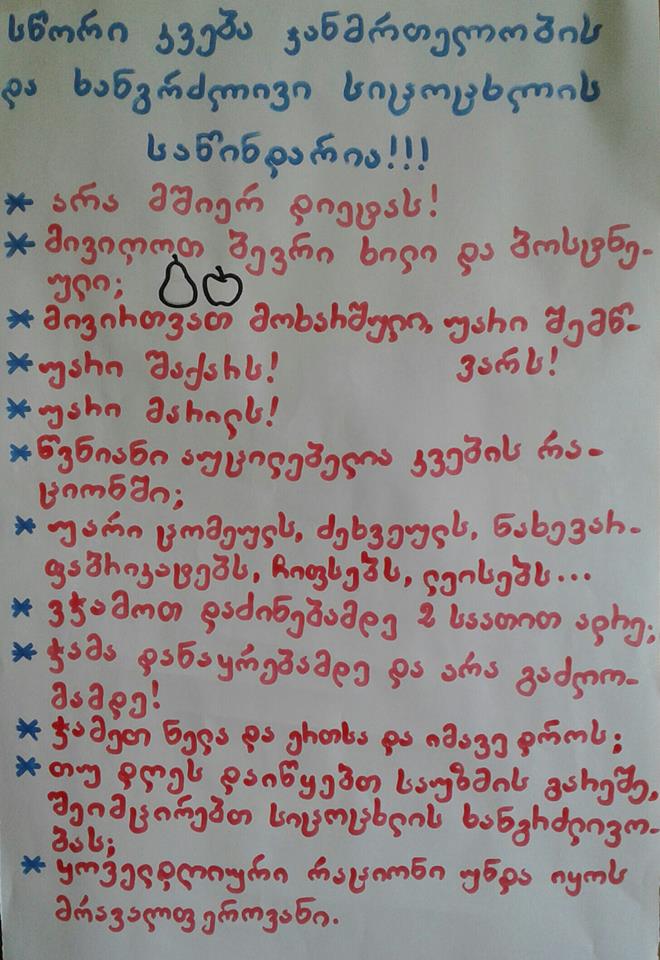 სწორი კვება ჯანმრთელობის
და ხანგრძლივი სიცოცხლის
საწინდარია!!!
* არა მშიერ დიეტას!
* მივიღოთ ბევრი ხილი და ბოსტნე-
ული;
* მივირთვათ მოხარშული, უარი შემწ-
ვარს!
* უარი შაქარს!
* უარი მარილს!
* წვნიანი აუცილებელია კვების რა-
ციონში;
* უარი ცომეულს, ძეხვეულს, ნახევარ-
ფაბრიკატებს, ჩიფსებს, ლეისებს...
* ვჭამოთ დაძინებამდე 2 საათით ადრე;
* ჭამა დანაყრებამდე და არა გაძღო-
მამდე!
* ჭამეთ ნელა და ერთსა და იმავე დროს;
* თუ დღეს დაიწყებთ საუზმის გარეშე,
შეიმცირებთ სიცოცხლის ხანგრძლივო-
ბას;
* ყოველდღიური რაციონი უნდა იყოს
მრავალფეროვანი.